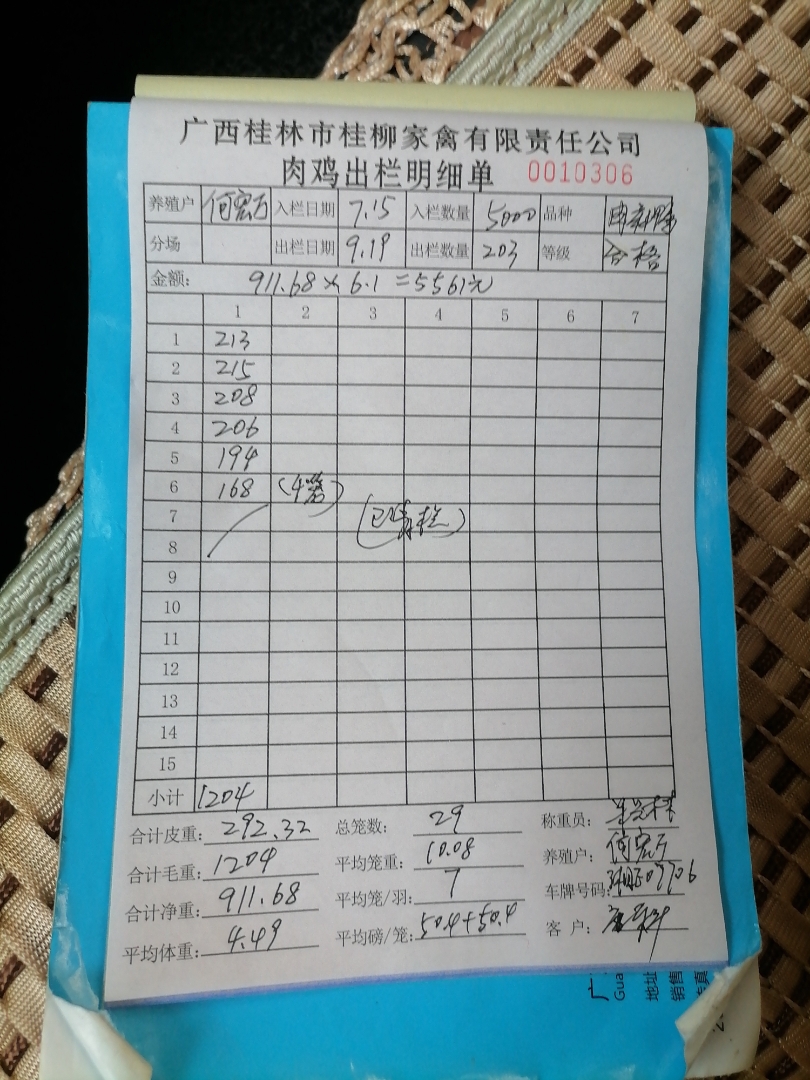 广西桂林市桂柳家禽有限责任公司
肉鸡出栏明细单 0010306
养殖户 何宏万 入栏日期 7.15 入栏数量 5000 品种
分场 出栏日期 9.19 出栏数量 203 等级 合格
金额: 911.68×6.1=5561元
1 2 3 4 5 6 7
1 213
2 215
3 208
4 206
5 194
6 168 (4笼)
7 (已清栏)
8
9
10
11
12
13
14
15
小计 1204
合计皮重: 292.32 总笼数: 29 称重员:
合计毛重: 1204 平均笼重: 10.08 养殖户: 何宏万
合计净重: 911.68 平均笼/羽: 7 车牌号码:
平均体重: 4.49 平均磅/笼: 50.4+50.4 客户:
广
Gua
地址
销售
传真